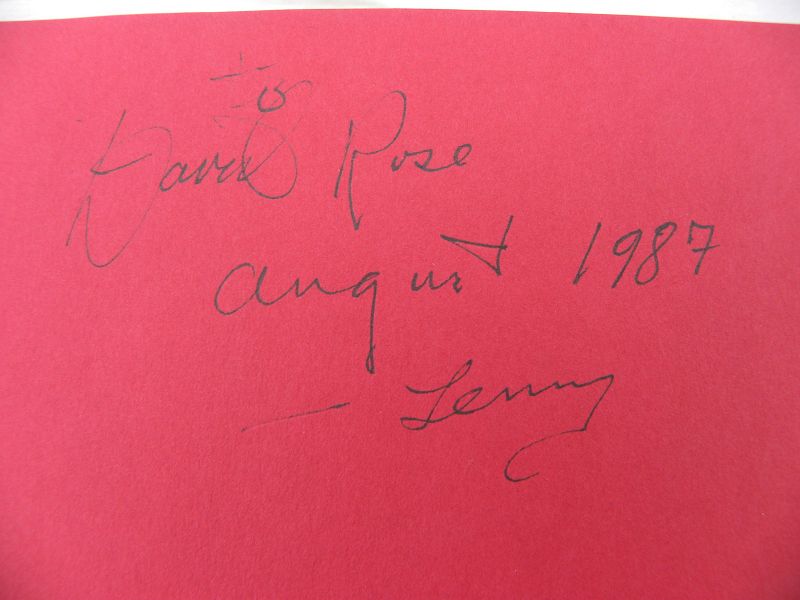 to
David Rose
August 1987
— Lenny